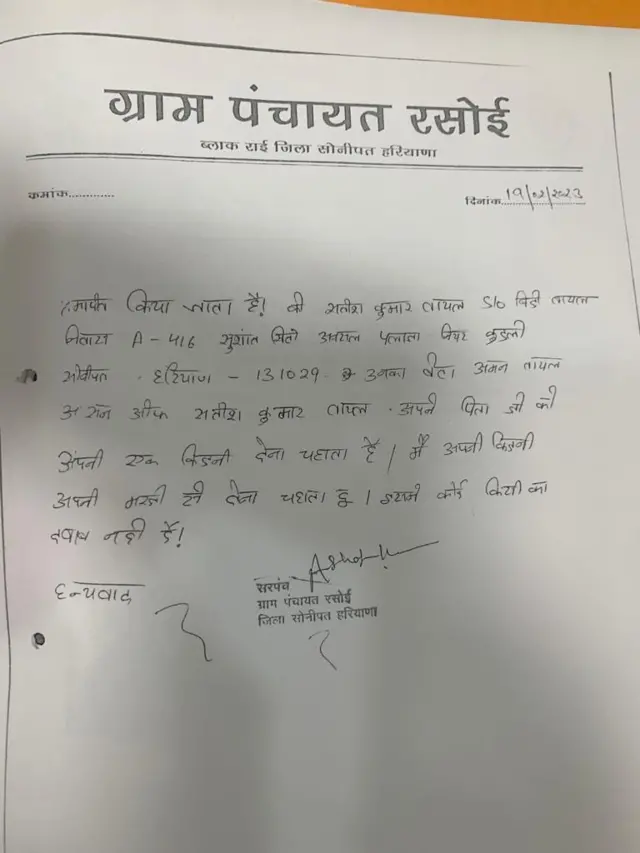 ग्राम पंचायत रसोई
ब्लाक राई जिला सोनीपत हरियाणा
कमांक............
दिनांक 19/02/2023
किया जाता है! की सतीश कुमार तायल S/o तायल
A - 416 सुशांत सिटी कुंडली
सोनीपत . हरियाणा - 131029 उनका बेटा अमन तायल
सन ऑफ सतीश कुमार तायल . अपने पिता जी को
अपनी एक किडनी देना चहाता है / मैं अपनी किडनी
अपनी मरजी से देना चहाता हू / इसमे कोई किसी का
दवाब नही है!
धन्यवाद
Ashok
सरपंच
ग्राम पंचायत रसोई
जिला सोनीपत हरियाणा